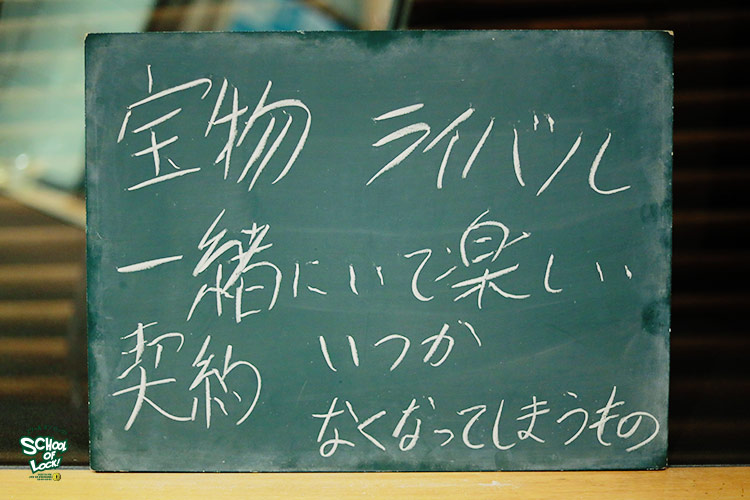 宝物 ライバル
一緒にいて楽しい
契約 いつか
なくなってしまうもの
SCHOOL
OF
LOCK!